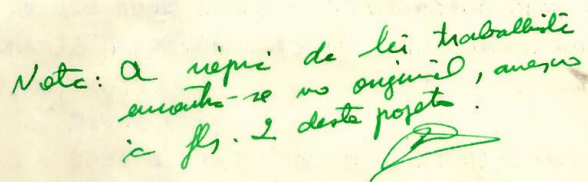 Nota: a cópia da lei trabalhista
encontra-se no original, anexo
à fls. 2 deste projeto.